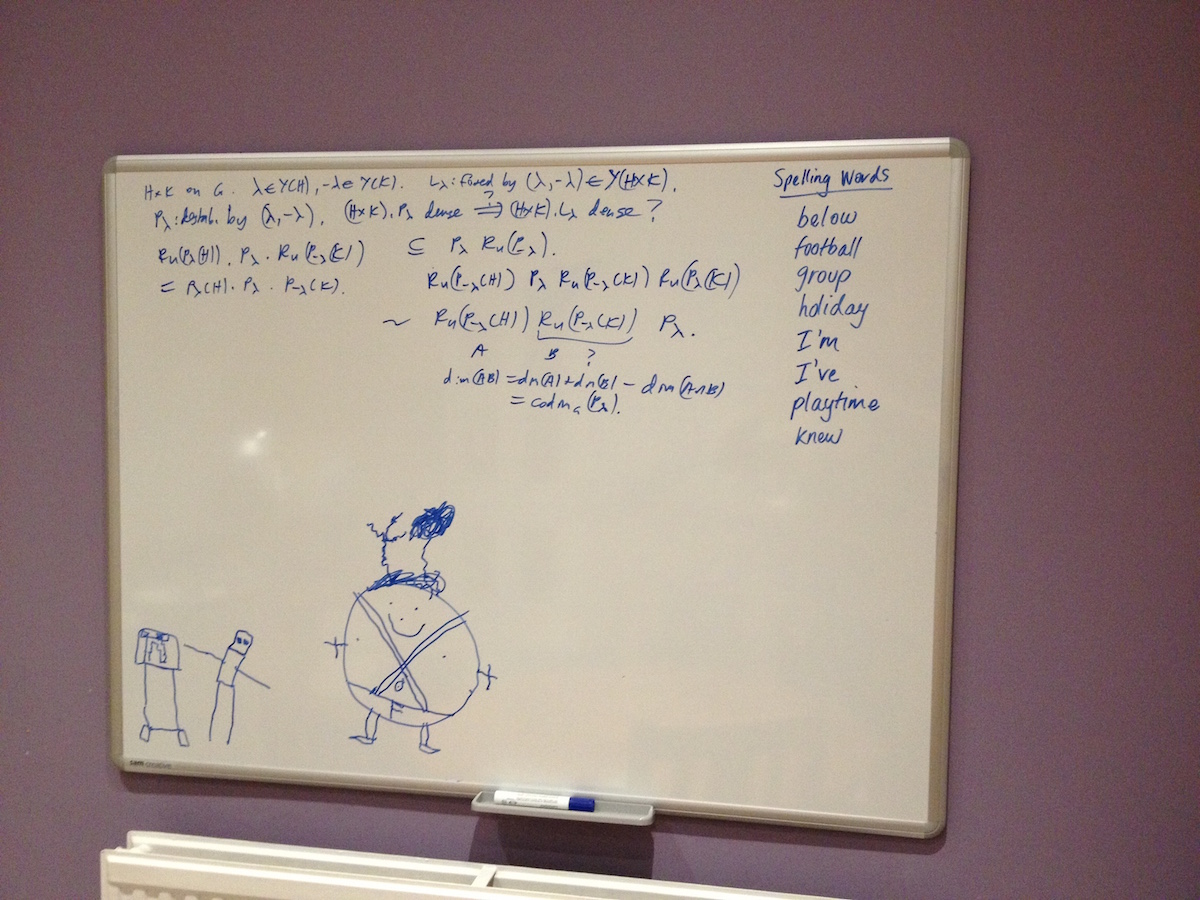 H×K on G. λ∈Y(H), -λ∈Y(K). Lλ: fixed by (λ,-λ)∈Y(H×K).
Pλ: destab. by (λ,-λ). (H×K).Pλ dense ?⇒ (H×K).Lλ dense?
Ru(Pλ(H)). Pλ. Ru(P-λ(K)) ⊆ Pλ Ru(P-λ).
= Pλ(H). Pλ. P-λ(K).
Ru(P-λ(H)) Pλ Ru(P-λ(K)) Ru(Pλ(K))
~ Ru(P-λ(H)) Ru(P-λ(K)) Pλ.
A B ?
dim(AB) = dim(A)+dim(B) - dim(A∩B)
= codim_G(Pλ).
Spelling Words
below
football
group
holiday
I'm
I've
playtime
knew
sam creative